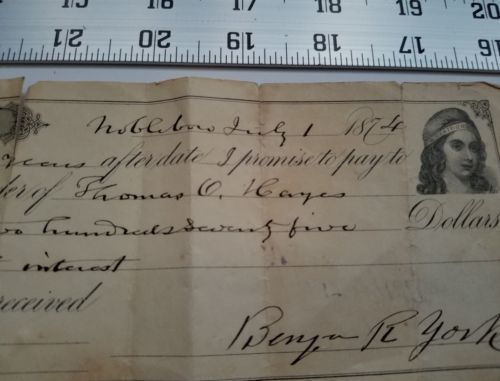 17 18 19 20
21 20 19 18 17
Nobleboro July 1 1874
after date I promise to pay to
der of Thomas O. Hayes
wo hundred seventy five Dollars
interest
received
Benja R York